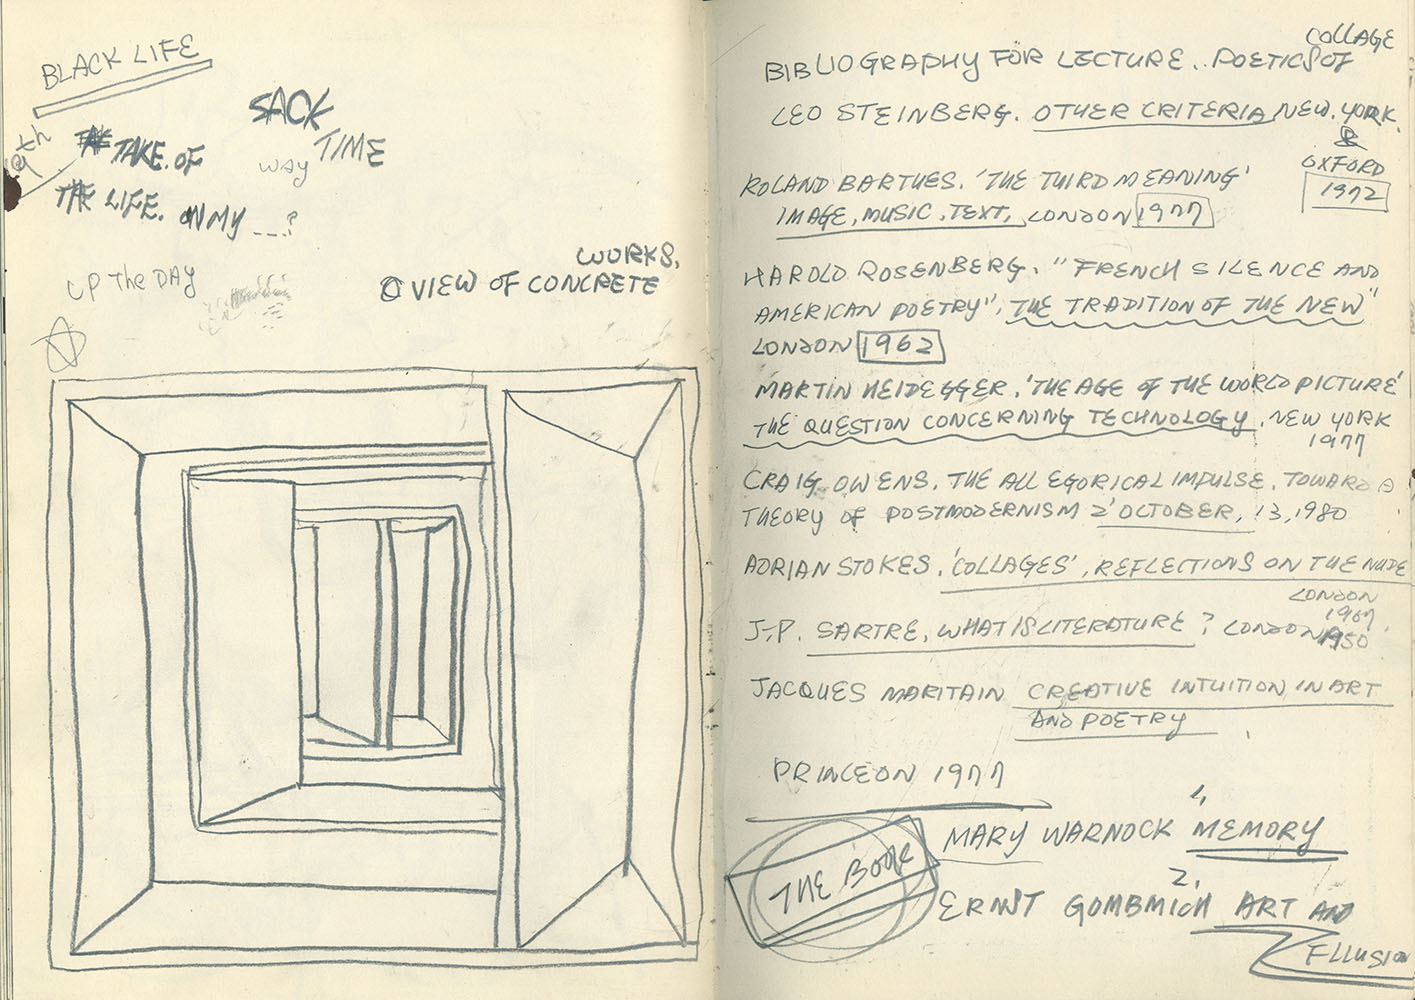 BLACK LIFE
9th
SACK
TAKE. OF
way TIME
THE LIFE. ON MY ---?
UP The DAY
WORKS,
VIEW OF CONCRETE
COLLAGE
BIBLIOGRAPHY FOR LECTURE.. POETICS OF
LEO STEINBERG. OTHER CRITERIA, NEW. YORK.
&
OXFORD
1972
ROLAND BARTHES. 'THE THIRD MEANING'
IMAGE, MUSIC, TEXT, LONDON 1977
HAROLD ROSENBERG. "FRENCH SILENCE AND
AMERICAN POETRY", THE TRADITION OF THE NEW"
LONDON 1962
MARTIN HEIDEGGER, 'THE AGE OF THE WORLD PICTURE'
THE QUESTION CONCERNING TECHNOLOGY, NEW YORK
1977
CRAIG OWENS, THE ALLEGORICAL IMPULSE, TOWARD A
THEORY OF POSTMODERNISM 2' OCTOBER, 13, 1980
ADRIAN STOKES, 'COLLAGES', REFLECTIONS ON THE NUDE
LONDON
1967
J,-P. SARTRE, WHAT IS LITERATURE? LONDON 1950
JACQUES MARITAIN CREATIVE INTUITION IN ART
AND POETRY
PRINCEON 1977
1,
MARY WARNOCK MEMORY
THE BOOK
2,
ERNST GOMBMICH ART AND
ELLUSION